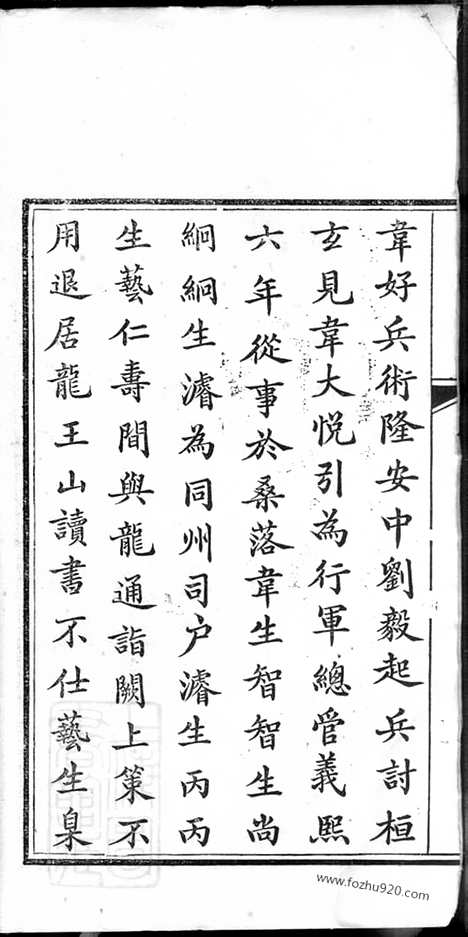 韋好兵術隆安中劉毅起兵討桓
玄見韋大悅引為行軍總管義熙
六年從事於桑落韋生智智生尚
絅絅生濬為同州司户濬生丙丙
生藝仁壽間與龍通詣闕上策不
用退居龍王山讀書不仕藝生臬
www.fozhu920.com